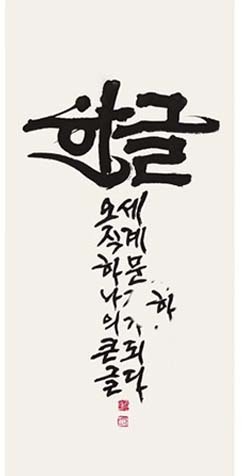 한글
오직하나의큰글
세계문
가되다
하